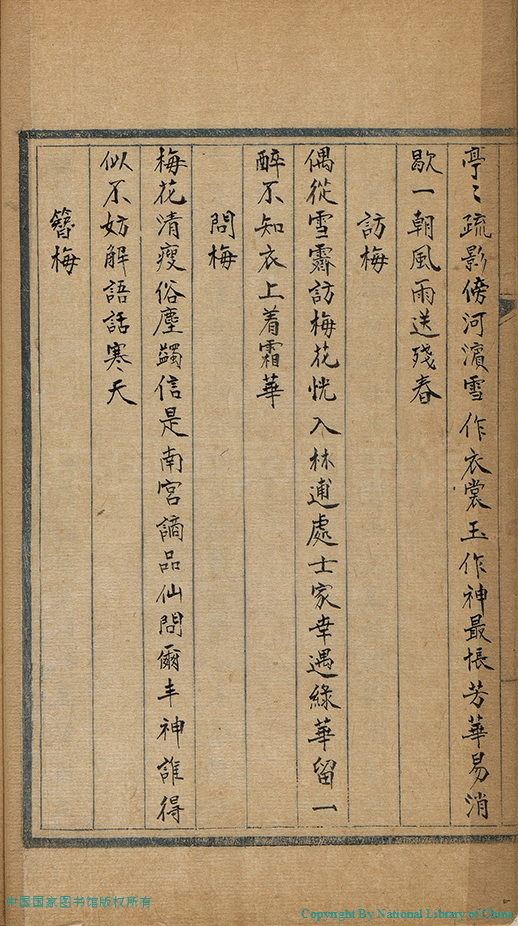 亭〻疏影傍河濱雪作衣裳玉作神最悵芳華易消
歇一朝風雨送殘春
訪梅
偶從雪霽訪梅花恍入林逋處士家幸遇綠華留一
醉不知衣上着霜華
問梅
梅花清瘦俗塵蠲信是南宮謫品仙問爾丰神誰得
似不妨解語話寒天
簪梅
中国国家图书馆版权所有
Copyright By National Library of China